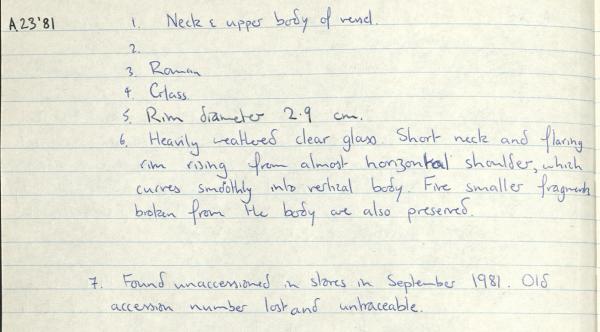 A23'81
1. Neck & upper body of vessel.
2.
3. Roman
4. Glass
5. Rim diameter 2.9 cm.
6. Heavily weathered clear glass. Short neck and flaring
rim rising from almost horizontal shoulder, which
curves smoothly into vertical body. Five smaller fragments
broken from the body are also preserved.
7. Found unaccessioned in stores in September 1981. Old
accession number lost and untraceable.